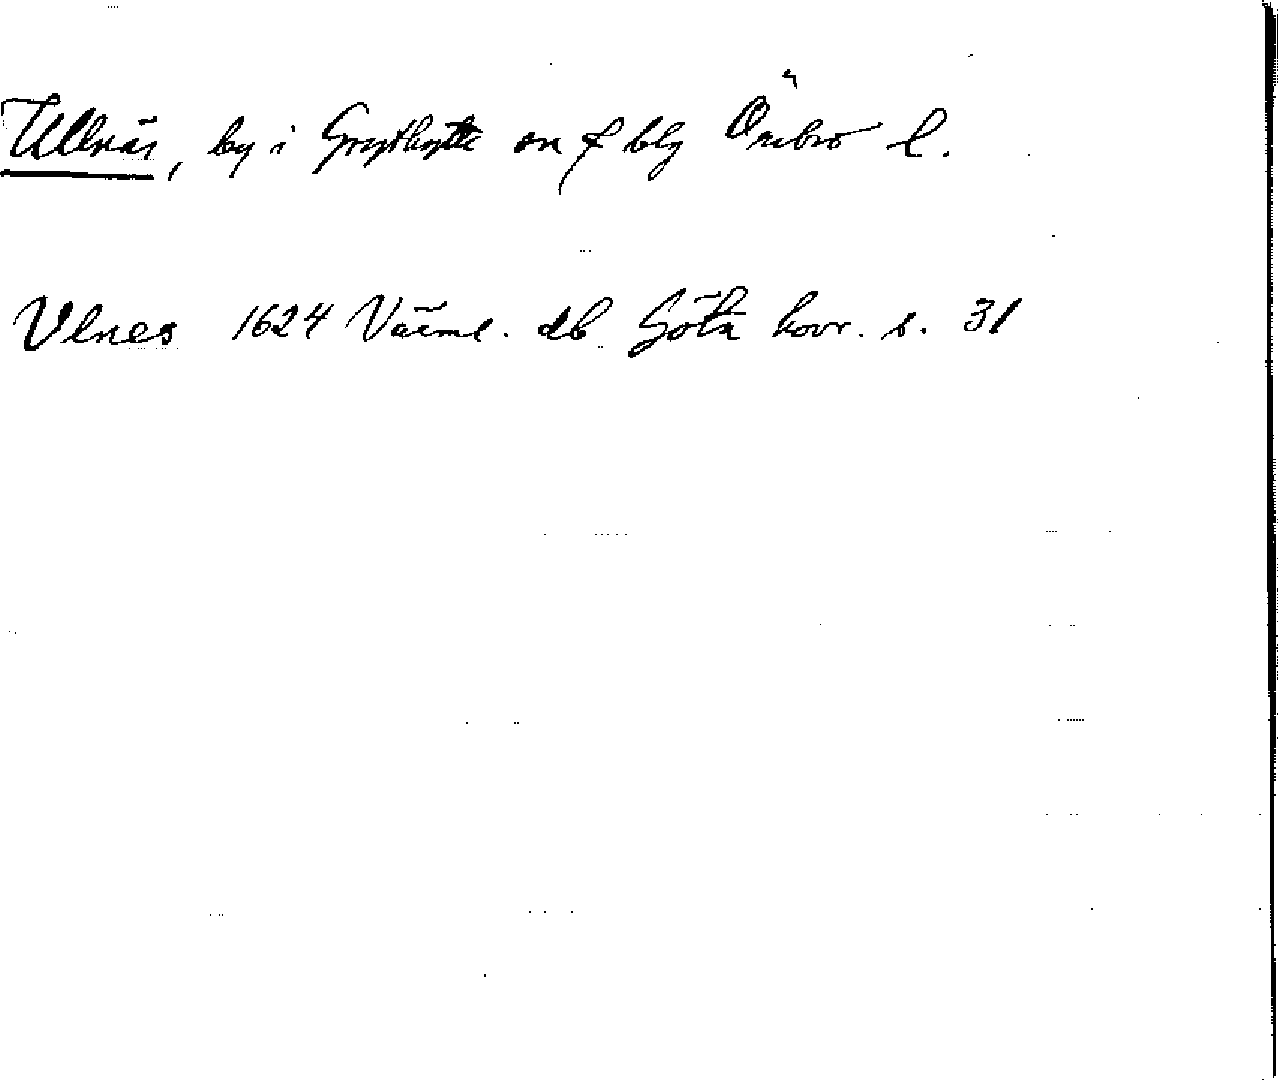 Ullnäs, by i Grythytte sn o f blg Örebro l.
Vlnes 1624 Värml. db Göta hovr. s. 31